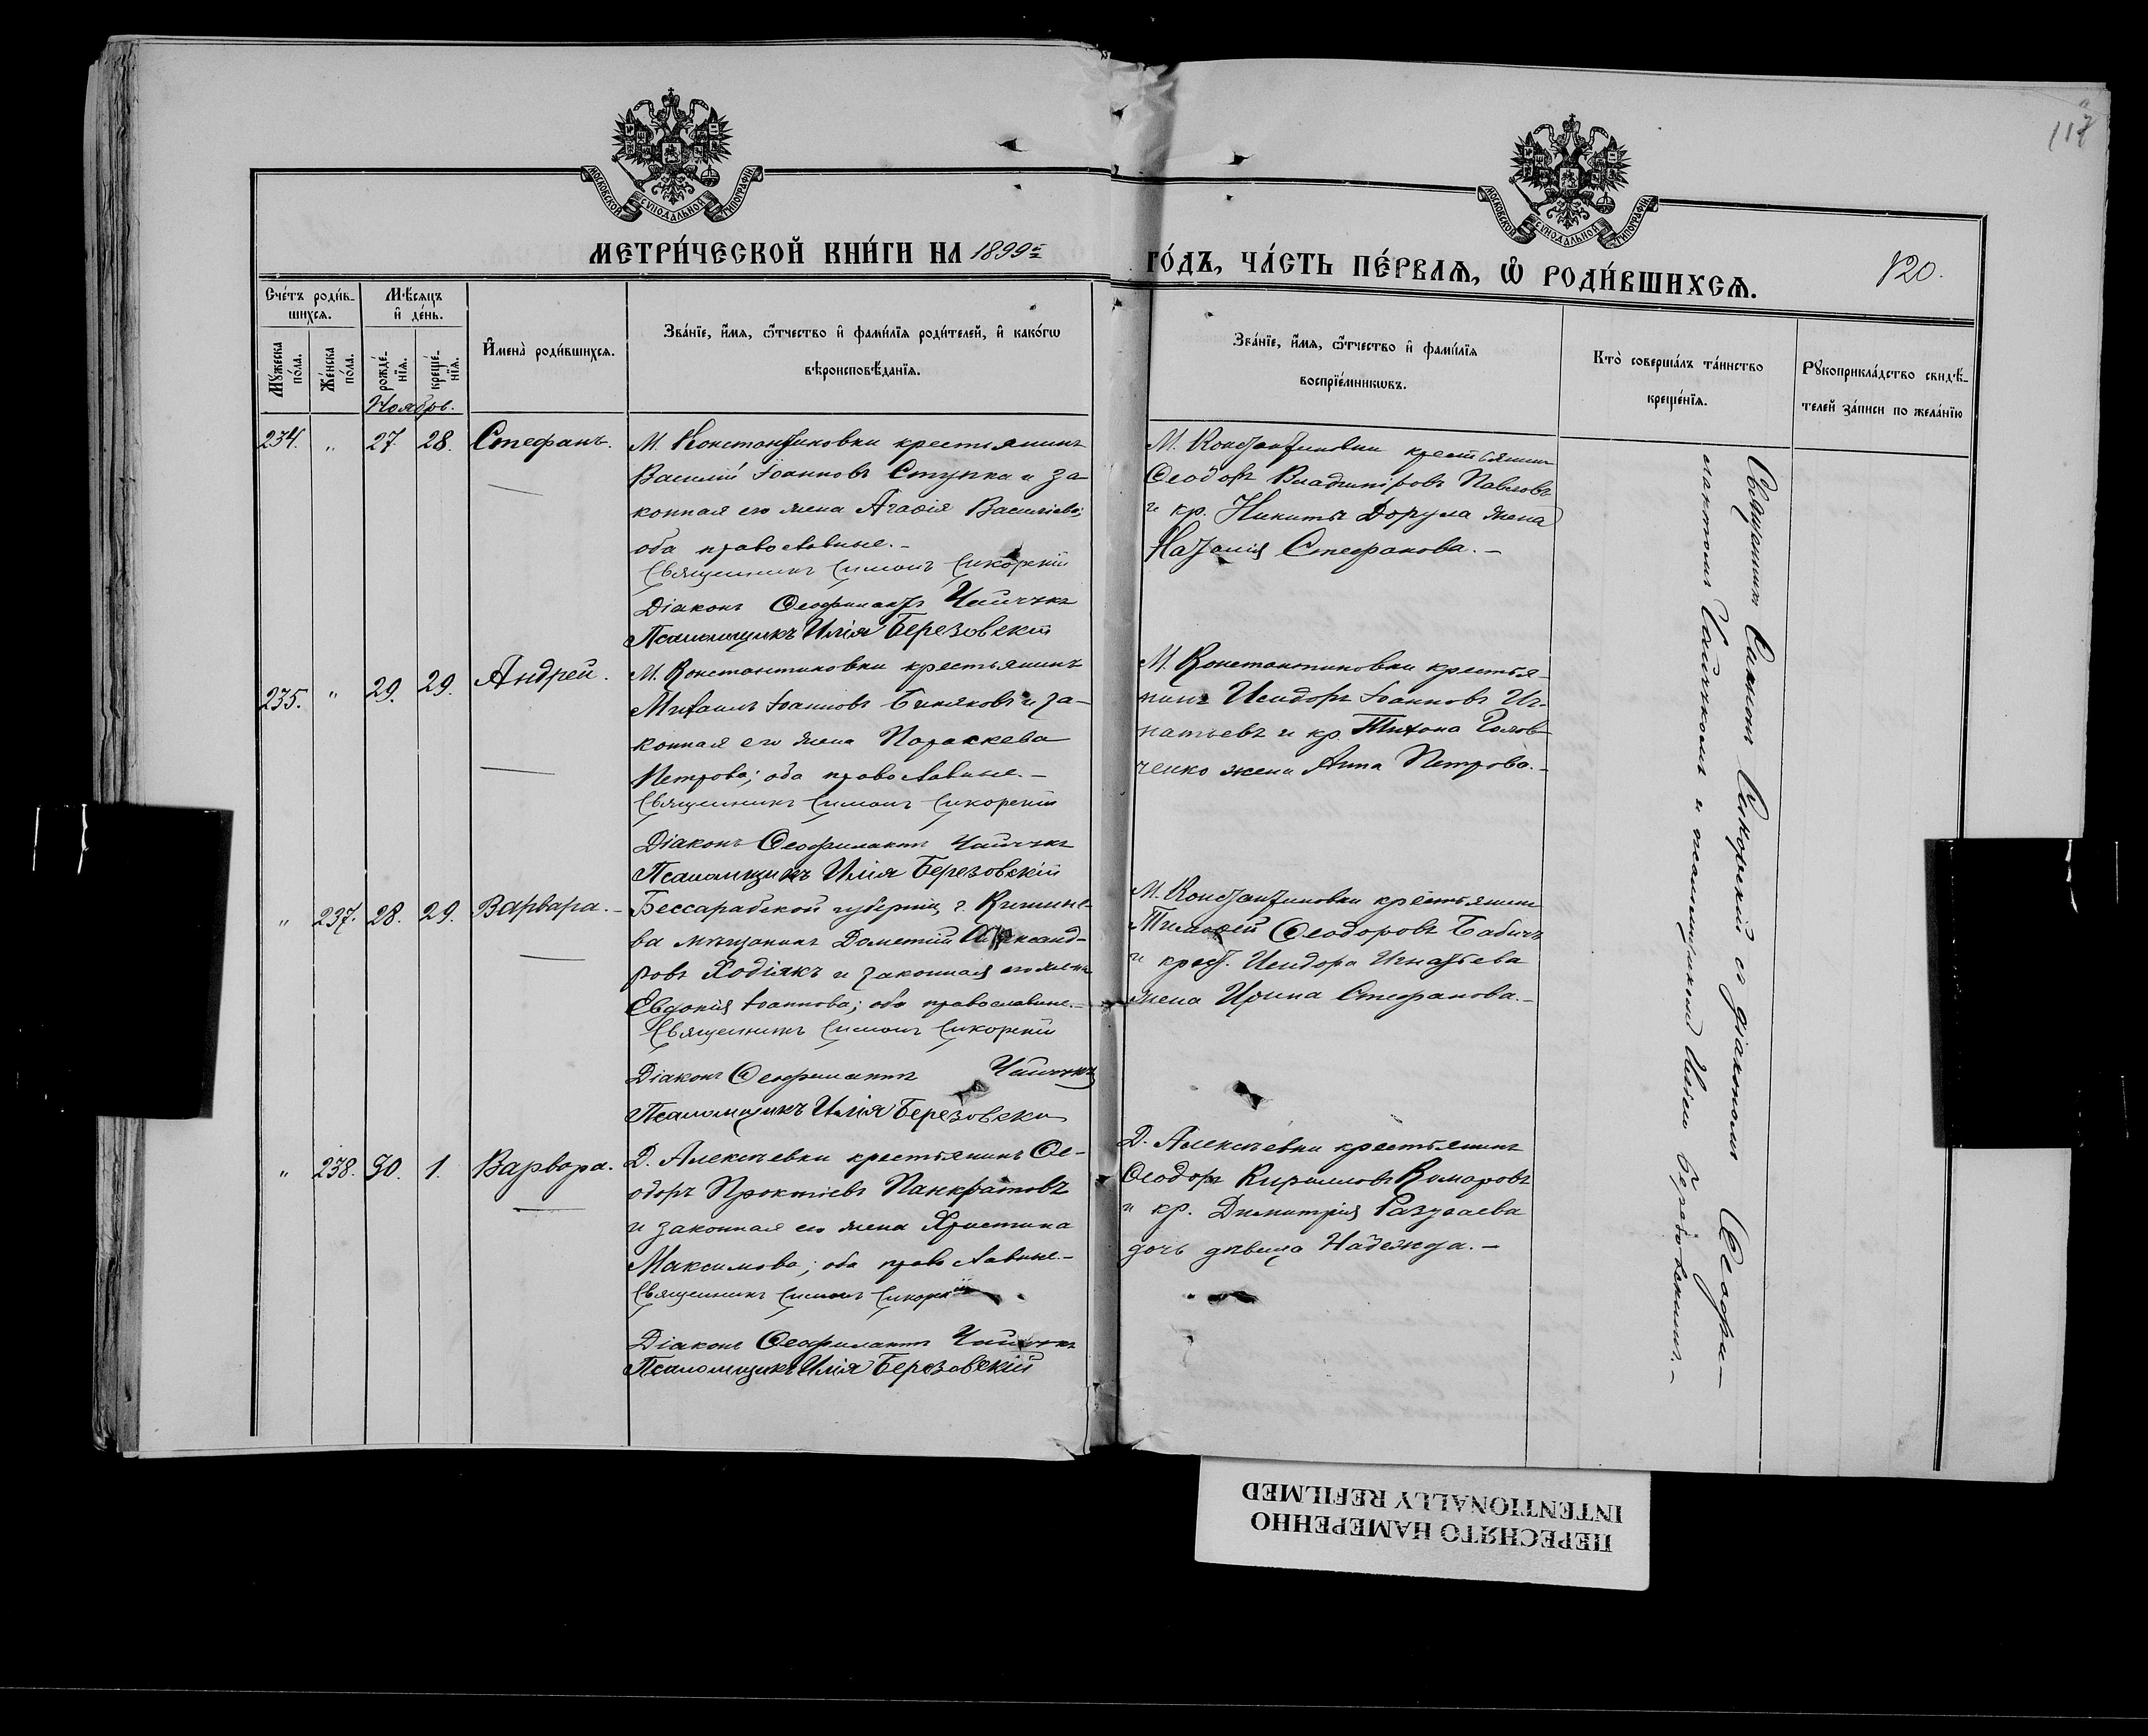 117
МОСКОВСКОЙ СѴНОДАЛЬНОЙ ТИПОГРАФІИ
МОСКОВСКОЙ СѴНОДАЛЬНОЙ ТИПОГРАФІИ
МЕТРИ́ЧЕСКОЙ КНИ́ГИ НА 1899й
ГО́ДЪ, ЧА́СТЬ ПЕ́РВАѦ, Ѽ РОДИ́ВШИХСѦ.
120.
Сче́тъ роди́в-
шихсѧ.
Му́жеска
по́ла.
Же́нска
по́ла.
Мѣ́сѧцъ
и҆ де́нь.
рожде́-
нїѧ.
креще́-
нїѧ.
Ноябрь.
И҆мена̀ роди́вшихсѧ.
Зва́нїе, и҆́мѧ, ѻ҆́тчество и҆ фами́лїѧ роди́телей, и҆ како́гѡ
вѣроисповѣ́данїѧ.
Зва́нїе, и҆́мѧ, ѻ҆́тчество и҆ фами́лїѧ
воспрїе́мникѡвъ.
Кто̀ соверша́лъ та́инство
креще́нїѧ.
Рꙋкоприкла́дство свидѣ́-
телей за́писи по жела́нїю
234. „ 27. 28. Стефанъ.
М. Константиновки крестьянинъ
Василій Іоанновъ Ступка и за-
конная его жена Агаѳія Васильева;
оба православные.-
Священникъ Симонъ Сикорскій
Діаконъ Ѳеофилактъ Чайчукъ
Псаломщикъ Илія Березовскій
М. Константиновки крестьянинъ
Ѳеодоръ Владиміровъ Павловъ
и кр. Никиты Дорула жена
Наталія Стефанова.-
235. „ 29. 29. Андрей.
М. Константиновки крестьянинъ
Михаилъ Іоанновъ Биняковъ и за-
конная его жена Параскева
Петрова; оба православные.-
Священникъ Симонъ Сикорскій
Діаконъ Ѳеофилактъ Чайчукъ
Псаломщикъ Илія Березовскій
М. Константиновки крестья-
нинъ Исидоръ Іоанновъ Иг-
натьевъ и кр. Тихона Голов-
ченко жена Анна Петрова.-
„ 237. 28. 29. Варвара.-
Бессарабской губерніи, г. Кишине-
ва мѣщанинъ Дометій Александ-
ровъ Ходіякъ и законная его жена
Евдокія Іоаннова; оба православные.-
Священникъ Симонъ Сикорскій
Діаконъ Ѳеофилактъ Чайчукъ
Псаломщикъ Илія Березовскій
М. Константиновки крестьянинъ
Тимоѳей Ѳеодоровъ Бабичъ
и крест. Исидора Игнатьева
жена Ирина Стефанова.-
„ 238. 30. 1. Варвара.
Д. Алексѣевки крестьянинъ Ѳе-
одоръ Проктіевъ Панкратовъ
и законная его жена Христина
Максимова; оба православные.-
Священникъ Симонъ Сикорскій
Діаконъ Ѳеофилактъ Чайчукъ
Псаломщикъ Илія Березовскій
Д. Алексѣевки крестьянинъ
Ѳеодоръ Кирилловъ Комаровъ
и кр. Димитрія Разуваева
дочь дѣвица Надежда.-
Священникъ Симонъ Сикорскій съ діакономъ Ѳеофи-
лактомъ Чайчукомъ и псаломщикомъ Иліею Березовскимъ.-
ПЕРЕСНЯТО НАМЕРЕННО
INTENTIONALLY REFILMED